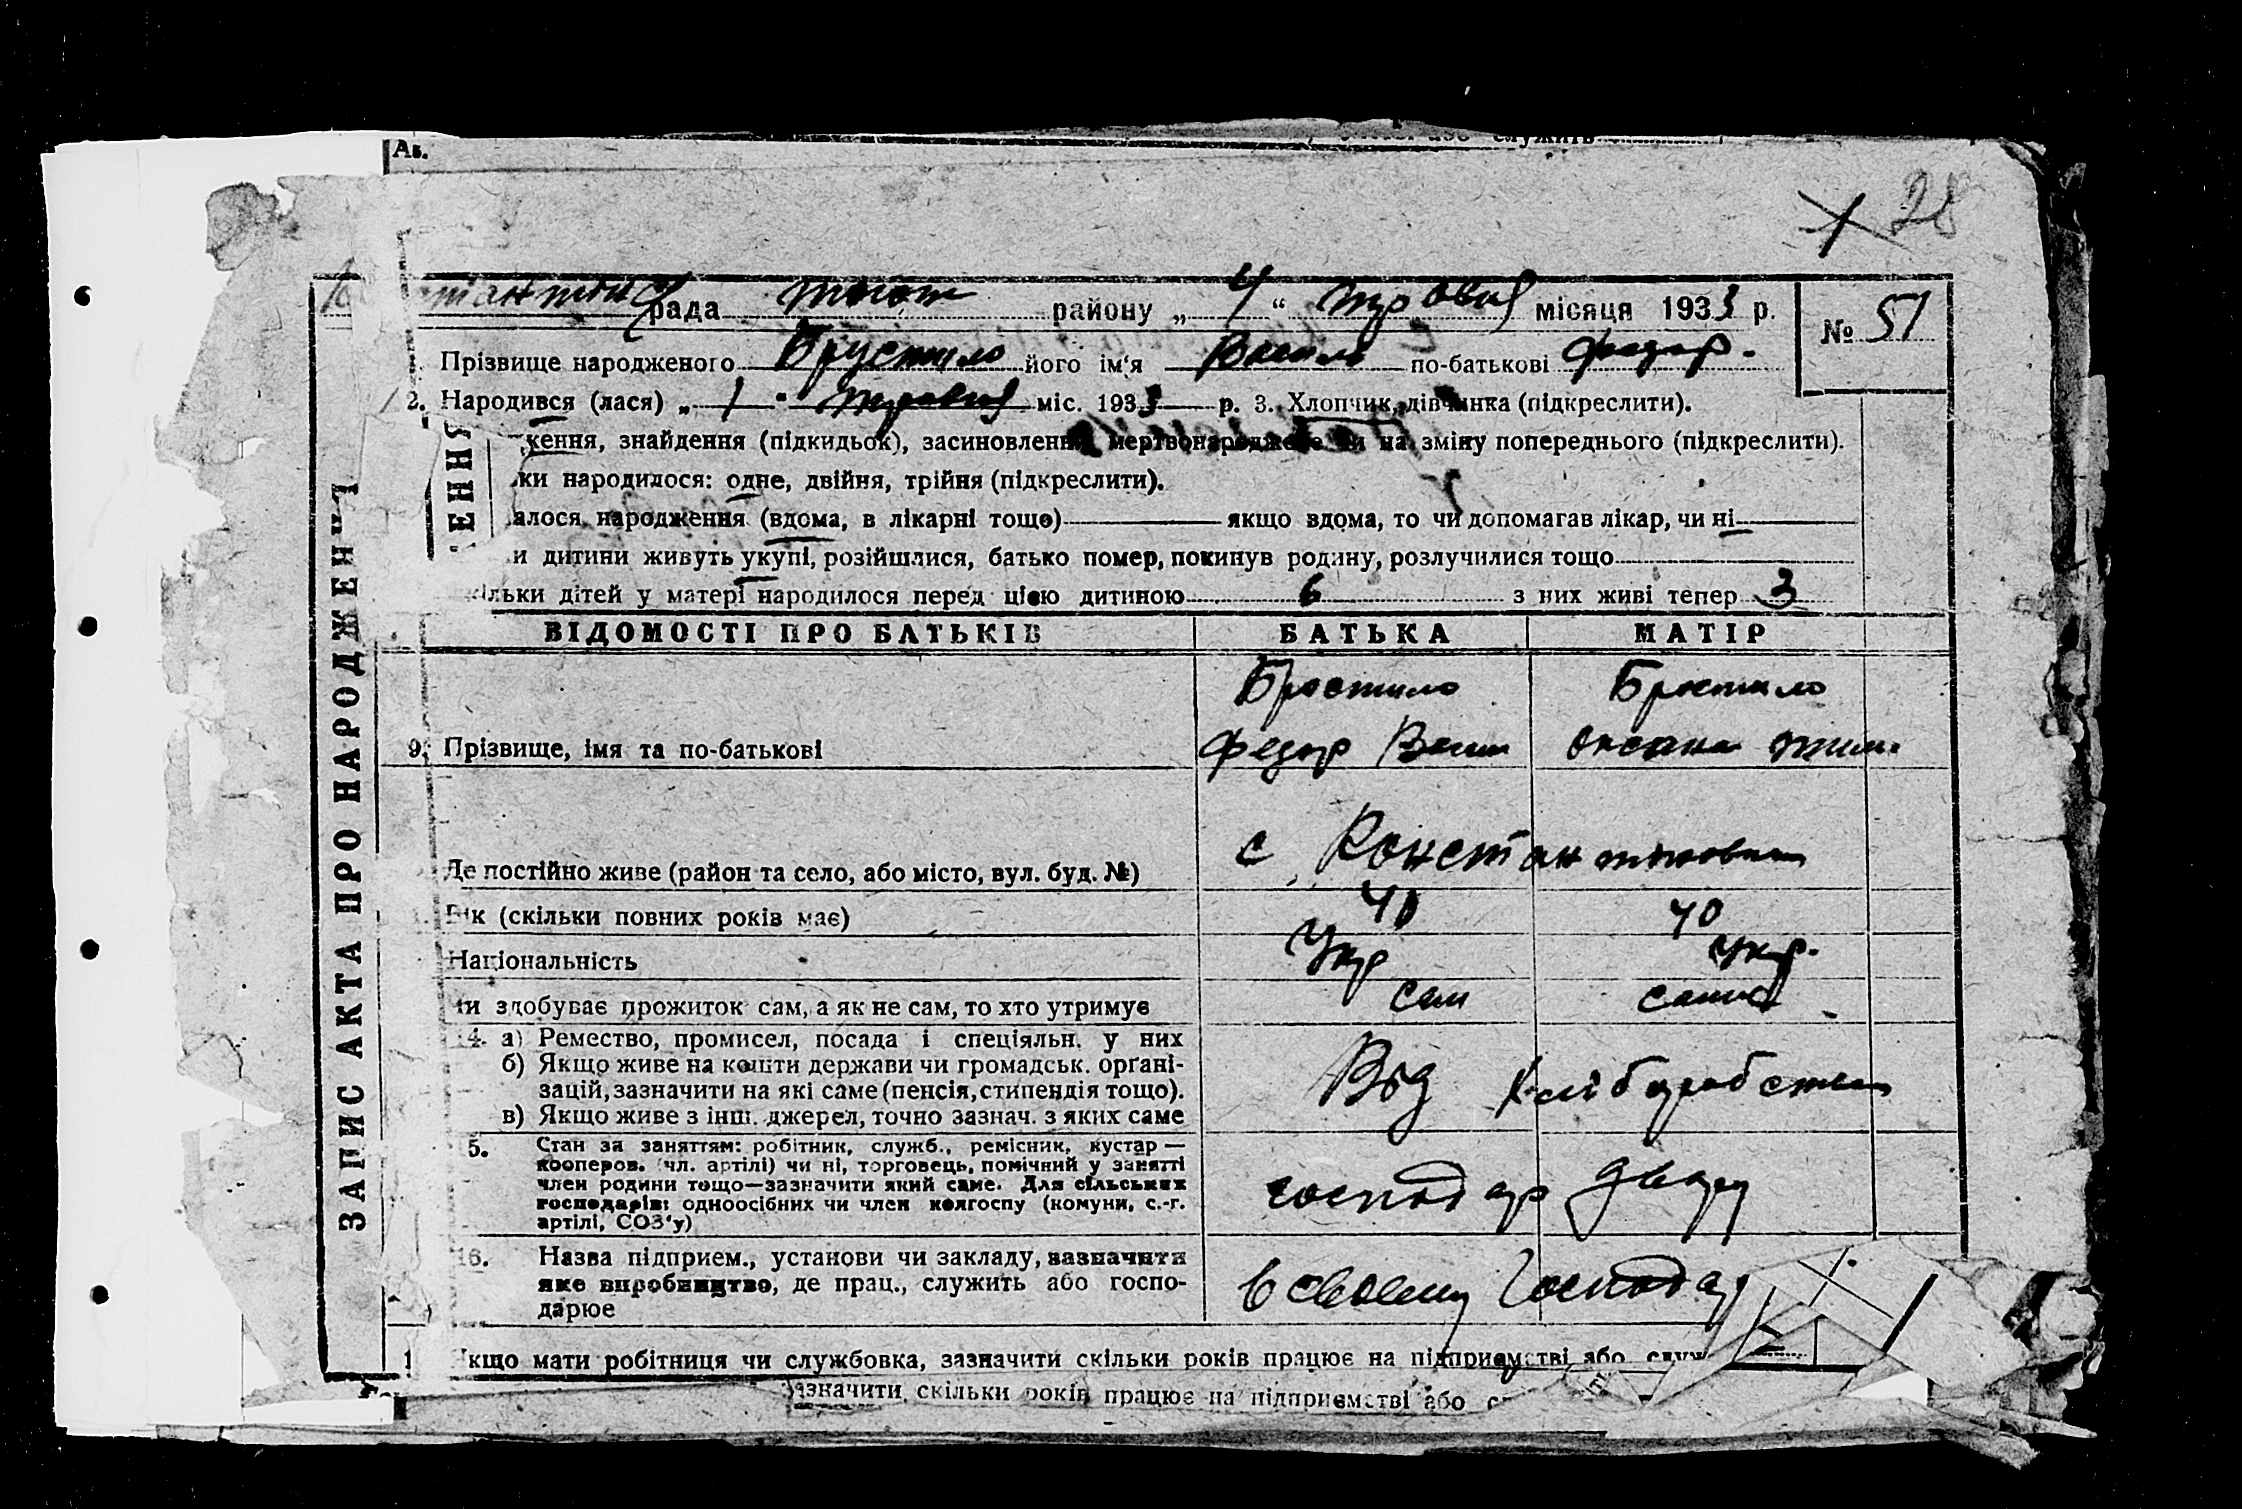 Ав.
28
рада района „ 4 “ травня місяця 1933 р.
№ 51
Прізвище народженого Брустило його ім'я Василь по-батькові Федор.
2. Народився (лася) „ 1 " травня міс. 1933 р. 3. Хлопчик, дівчинка (підкреслити).
ження, знайдення (підкидьок), засиновлення, мертвонароджене чи на зміну попереднього (підкреслити).
ки народилося: одне, двійня, трійня (підкреслити).
алося народження (вдома, в лікарні тощо) якщо вдома, то чи допомагав лікар, чи ні
и дитини живуть укупі, розійшлися, батько помер, покинув родину, розлучилися тощо
ільки дітей у матері народилося перед цією дитиною 6 з них живі тепер 3
ЗАПИС АКТА ПРО НАРОДЖЕННЯ
ЕННЯ
ВІДОМОСТІ ПРО БАТЬКІВ БАТЬКА МАТІР
Брустило Брустило
9. Прізвище, імя та по-батькові Федор Васил Оксана Тим.
Де постійно живе (район та село, або місто, вул. буд. №) с Константиновка
Вік (скільки повних років має) 40 40
Національність Укр Укр.
чи здобуває прожиток сам, а як не сам, то хто утримує сам сама
14. а) Ремество, промисел, посада і спеціяльн. у них
б) Якщо живе на кошти держави чи громадськ. орґані-
зацій, зазначити на які саме (пенсія, стипендія тощо).
в) Якщо живе з інш. джерел, точно зазнач. з яких саме
Від хліборобства
5. Стан за заняттям: робітник, служб., ремісник, кустар —
кооперов. (чл. артілі) чи ні, торговець, помічний у занятті
член родини тощо—зазначити який саме. Для сільських
господарів: одноосібних чи член колгоспу (комуни, с.-г.
артілі, СОЗ'у)
господар двору
16. Назва підприєм., установи чи закладу, зазначити
яке виробництво, де прац., служить або госпо-
дарює
в своему господар
1 Якщо мати робітниця чи службовка, зазначити скільки років працює на підприємстві або служ
зазначити скільки років працює на підприємстві або с